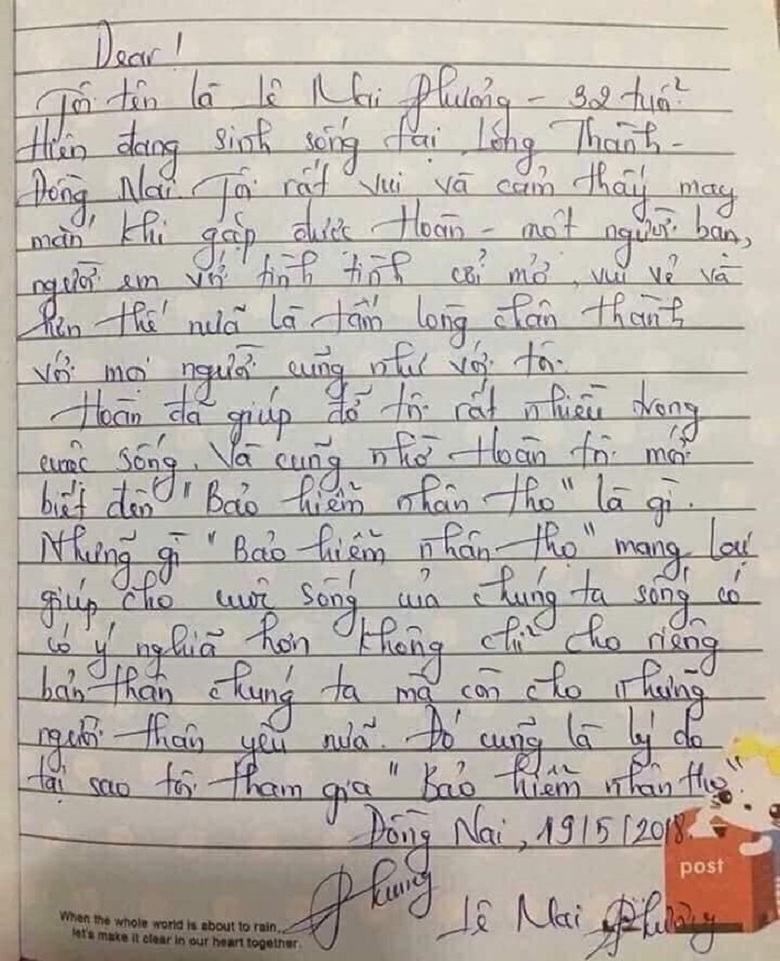 Dear!
Tôi tên là Lê Mai Phương - 32 tuổi
Hiện đang sinh sống tại Long Thành -
Đồng Nai. Tôi rất vui và cảm thấy may
mắn khi gặp được Hoàn - một người bạn,
người em với tính tình cởi mở, vui vẻ và
hơn thế nữa là tấm lòng chân thành
với mọi người cũng như với tôi.
Hoàn đã giúp đỡ tôi rất nhiều trong
cuộc sống. Và cũng nhờ Hoàn tôi mới
biết đến "Bảo hiểm nhân thọ" là gì.
Những gì "Bảo hiểm nhân thọ" mang lại
giúp cho cuộc sống của chúng ta sống có
có ý nghĩa hơn không chỉ cho riêng
bản thân chúng ta mà còn cho những
người thân yêu nữa. Đó cũng là lý do
tại sao tôi tham gia "Bảo hiểm nhân thọ"
Đồng Nai, 19/5/2018.
Phương
Lê Mai Phương
post
When the whole world is about to rain,
let's make it clear in our heart together.